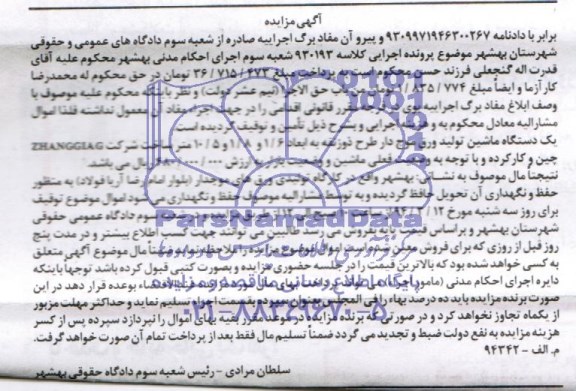 آگهی مزایده
برابر با دادنامه ۹۳۰۹۹۷۱۹۴۶۳۰۰۲۶۷ و پیرو آن مفاد برگ اجراییه صادره از شعبه سوم دادگاه های عمومی و حقوقی
شهرستان بهشهر موضوع پرونده اجرایی کلاسه ۹۳۰۱۹۳ شعبه سوم اجرای احکام مدنی بهشهر محکوم علیه آقای
قدرت اله گنجعلی فرزند حسن محکوم است به پرداخت مبلغ ۳۶/۷۱۵/۴۷۳ تومان در حق محکوم له محمدرضا
کارآزما و ایضاً مبلغ ۱/۸۳۵/۷۷۴ تومان من باب حق الاجرا (نیم عشر دولت) و نظر باینکه محکوم علیه موصوف با
وصف ابلاغ مفاد برگ اجراییه قانونی اقدامی را در جهت اجرای مفاد آن معمول نداشته فلذا اموال
مشارالیه معادل محکوم به و اجرایی و بشرح ذیل تأمین و توقیف گردیده است
یک دستگاه ماشین تولید ورق موج دار طرح ذوزنقه به ابعاد ۱/۶ و ۱/۸ و ۱۰/۵ متر ساخت شرکت ZHANGGIAG
چین و کارکرده و با توجه به وضعیت فعلی ماشین و وضعیت بازار به ارزش ریال می باشد.
نتیجتاً مال موصوف به نشانی: بهشهر واقع در کارگاه تولیدی ورق های موجدار (بلوار امام رضا آریا فولاد) به منظور
حفظ و نگهداری آن تحویل حافظ گردیده و به توسط مشارالیه موصوف حفظ و نگهداری می شود اموال موضوع توقیف
برای روز سه شنبه مورخ سوم دادگاه عمومی حقوقی
شهرستان بهشهر و براساس قیمت پایه بفروش می رسد طالبین می توانند جهت کسب اطلاع بیشتر و در مدت پنج
روز قبل از روزی که برای فروش معین شده است اموال موضوع مزایده را ملاحظه نمایند ضمناً مال موضوع آگهی متعلق
به کسی خواهد شد بود که بالاترین قیمت را در جلسه حضوری مزایده و بصورت کتبی قبول کرده باشد توجهاً باینکه
دایره اجرای احکام مدنی (مامور اجرا) می تواند پرداخت بهای مال فروخته شده در مزایده را بوعده قرار دهد در این
صورت برنده مزایده باید ده درصد بهاء را فی المجلس بعنوان سپرده بقسمت اجرا تسلیم نماید و حداکثر مهلت مزبور
از یکماه تجاوز نخواهد کرد و در صورتی که برنده مزایده در موعد مقرر بقیه بهای اموال را نپردازد سپرده پس از کسر
هزینه مزایده به نفع دولت ضبط و تجدید می گردد ضمناً تسلیم مال فقط بعد از پرداخت تمام آن صورت خواهد گرفت.
م. الف - ۹۴۳۴۲
سلطان مرادی - رئیس شعبه سوم دادگاه حقوقی بهشهر
ParsNamadData
۰۲۱-۸۸۳۴۹۶۷۰-۵